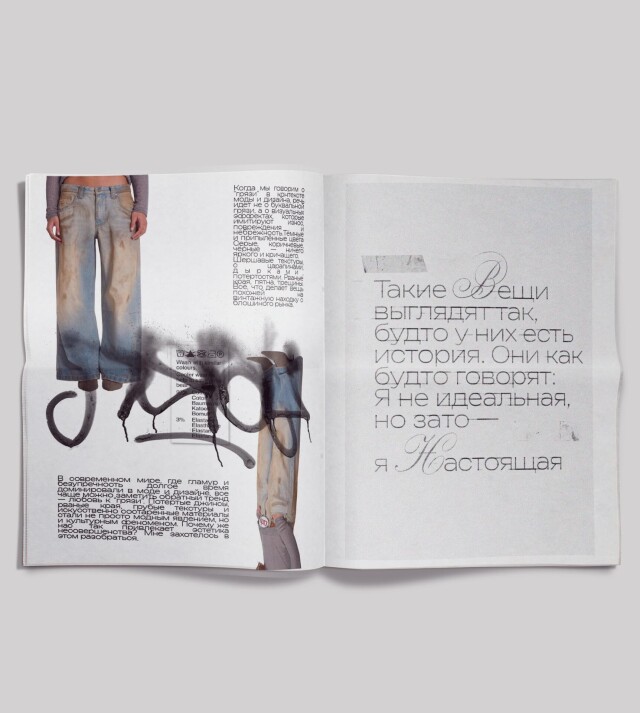 Когда мы говорим о
"грязи" в контексте
моды и дизайна, речь
идет не о буквальной
грязи, а о визуальных
эффектах, которые
имитируют износ,
повреждения и
небрежность. Темные
и припыленные цвета
Серые, коричневые,
черные — ничего
яркого и кричащего.
Шершавые текстуры,
с царапинами,
дырками и
потертостями. Рваные
края, пятна, трещины.
Всё, что делает вещь
похожей на
винтажную находку с
блошиного рынка.
Wash
colours.
3%
В современном мире, где гламур и
безупречность долгое время
доминировали в моде и дизайне, все
чаще можно заметить обратный тренд
— любовь к грязи. Потертые джинсы,
рваные края, грубые текстуры и
искусственно состаренные материалы
стали не просто модным явлением, но
и культурным феноменом. Почему же
нас так привлекает эстетика
несовершенства? Мне захотелось в
этом разобраться.
Такие Вещи
выглядят так,
будто у них есть
история. Они как
будто говорят:
Я не идеальная,
но зато —
я Настоящая